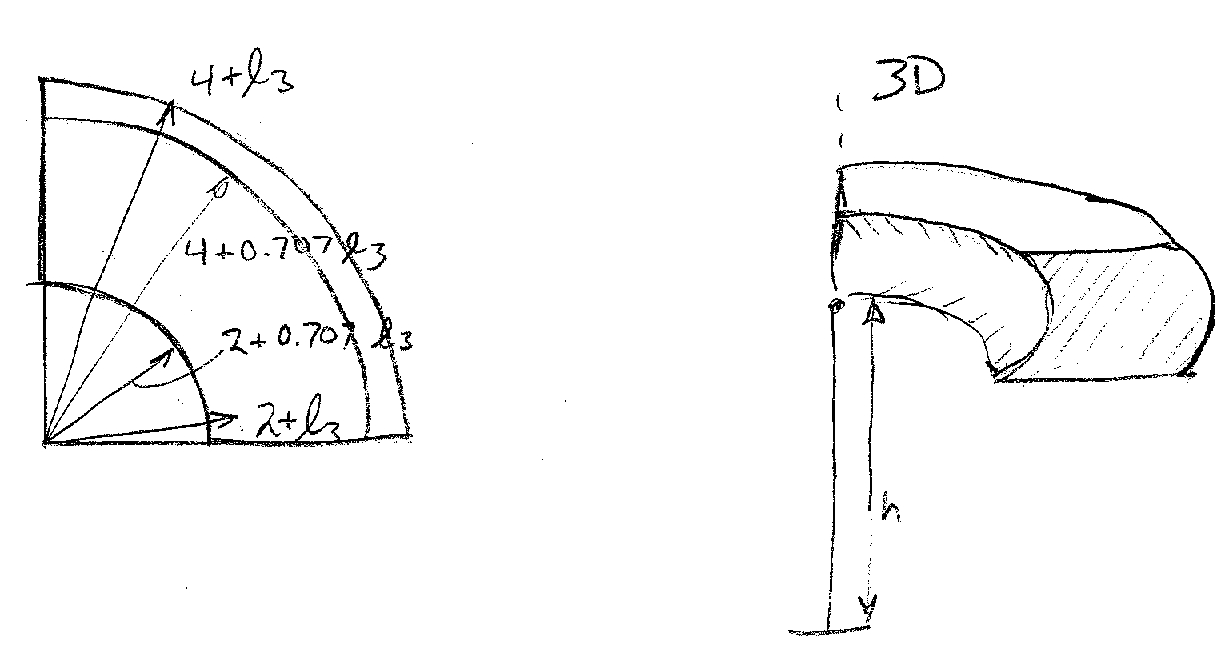 4+l3
4+0.707 l3
2+0.707 l3
2+l3
3D
h